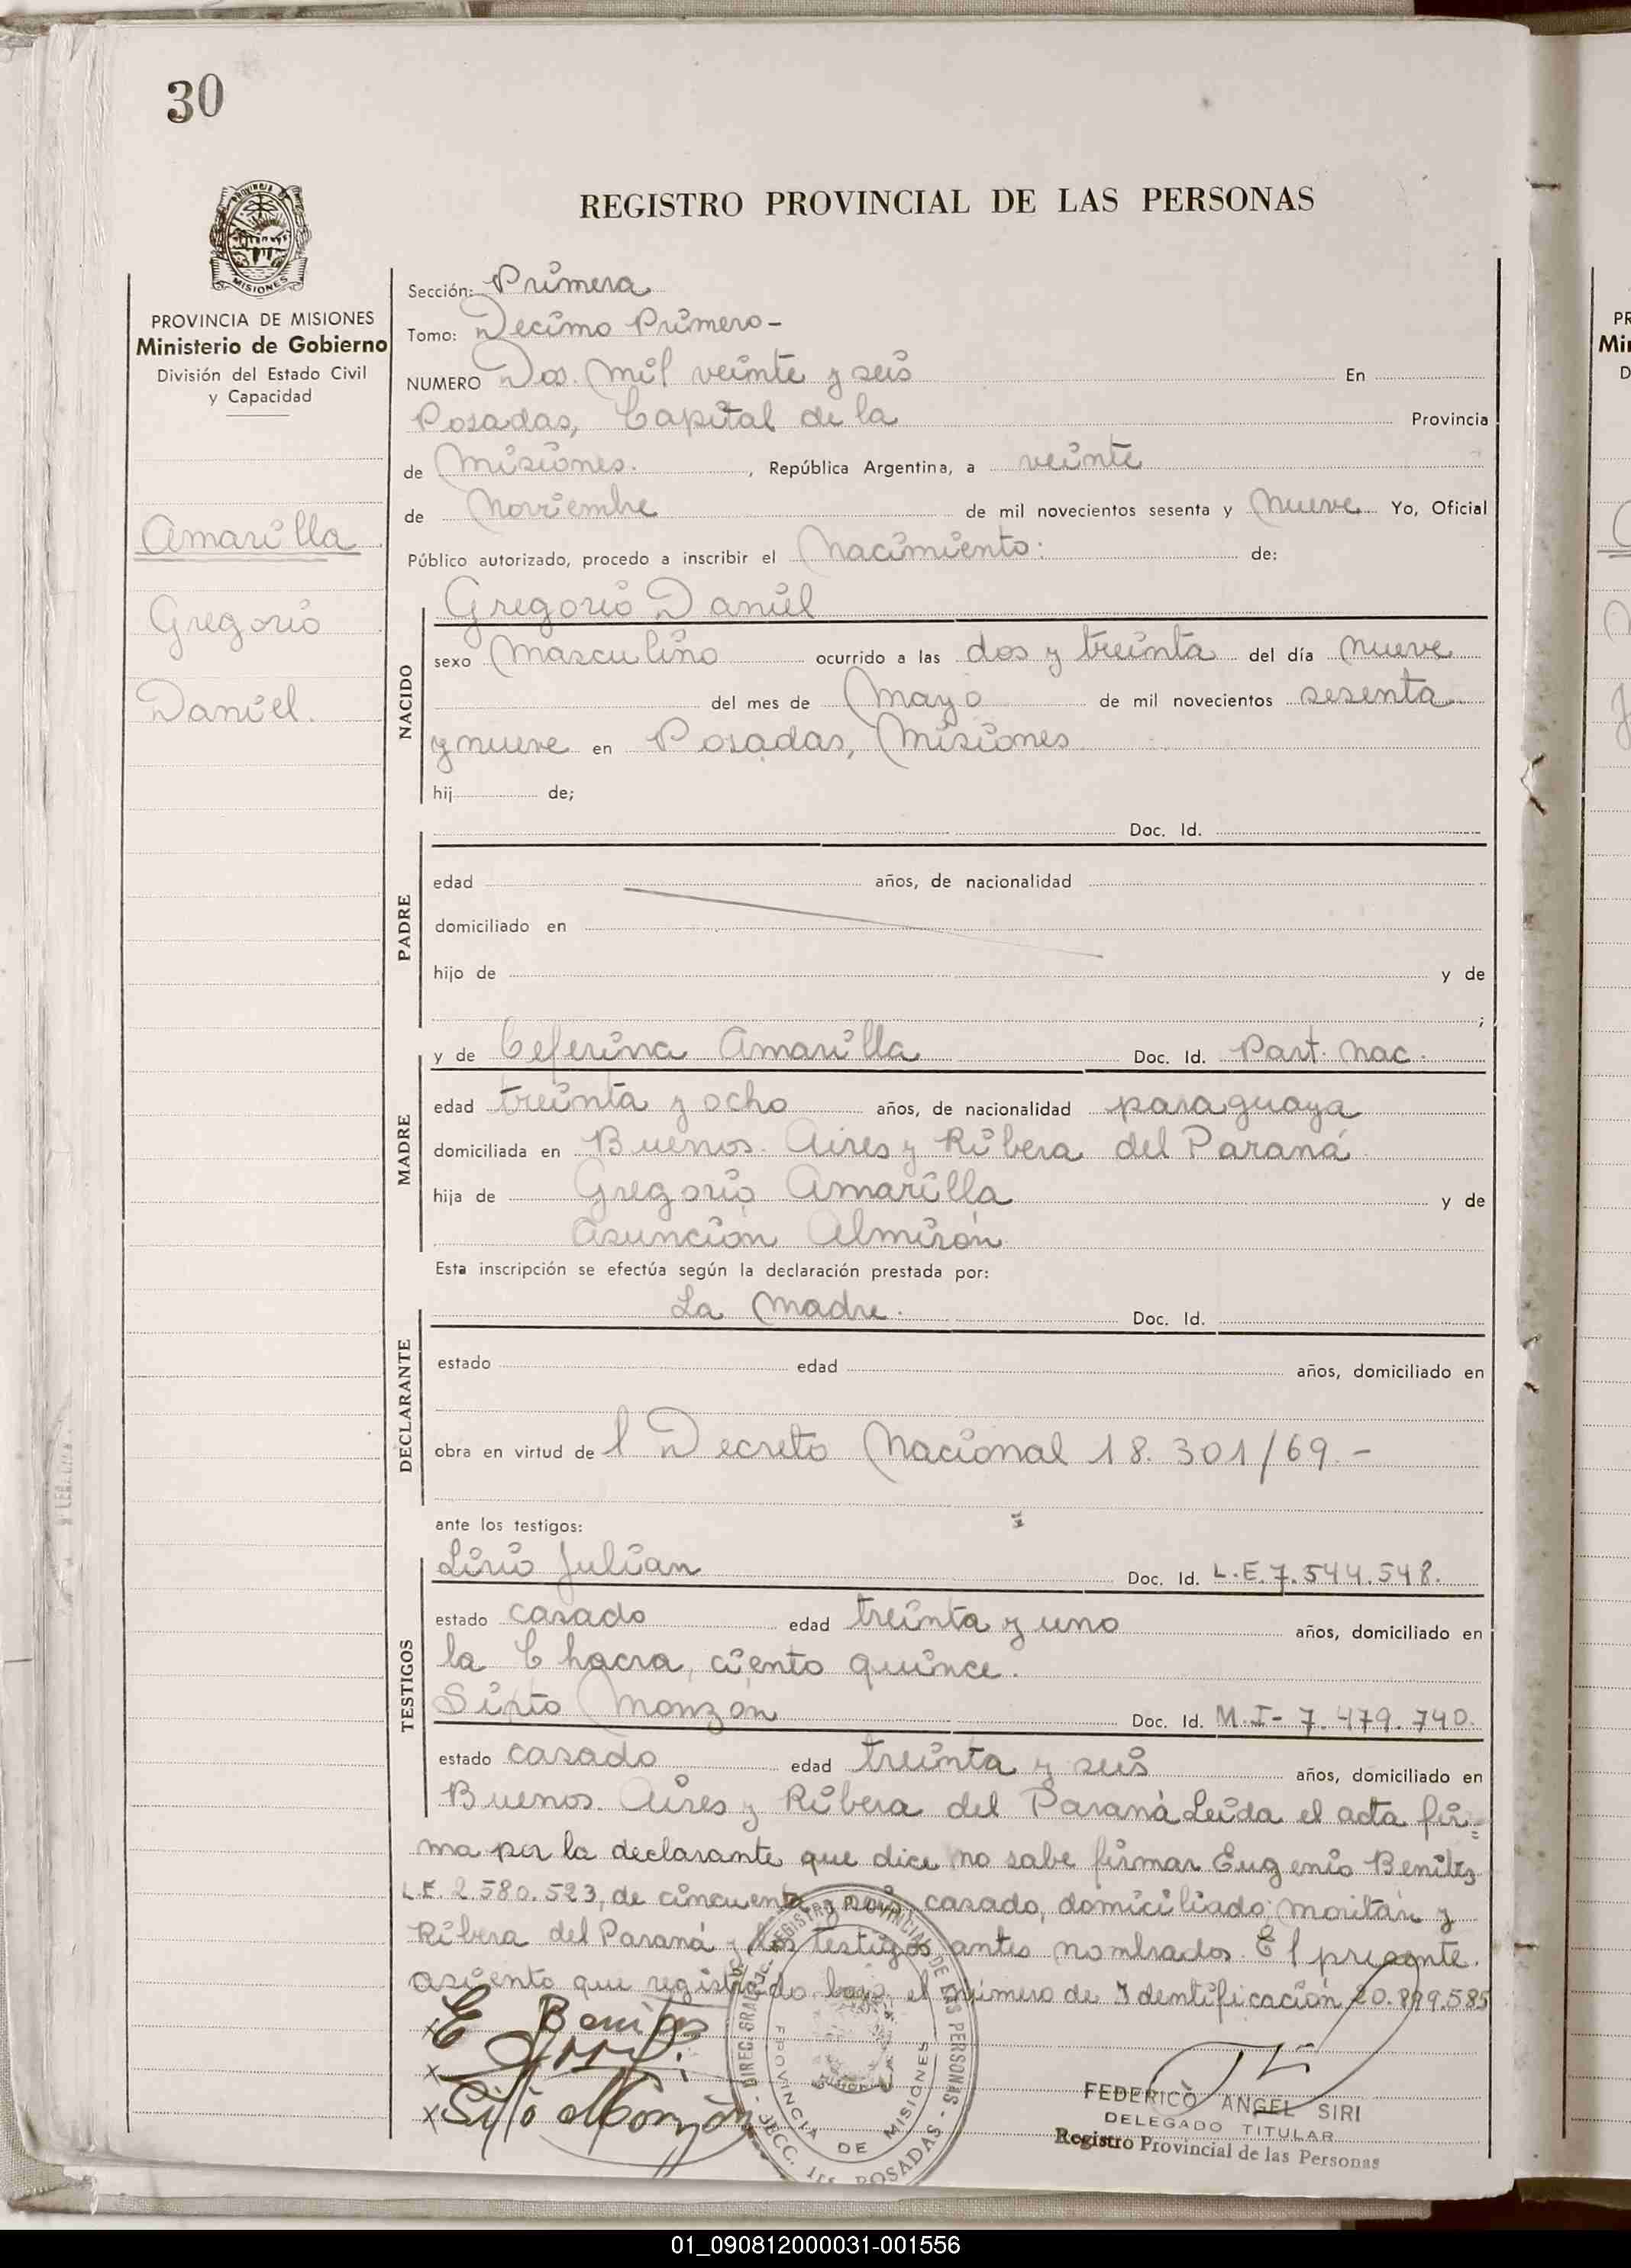 30
REGISTRO PROVINCIAL DE LAS PERSONAS
MISIONES
PROVINCIA DE MISIONES
Ministerio de Gobierno
División del Estado Civil
y Capacidad
Amarilla
Gregorio
Daniel.
Sección: Primera
Tomo: Decimo Primero-
NUMERO Dos. mil veinte y seis En
Posadas, Capital de la Provincia
de Misiones. , República Argentina, a veinte
de Noviembre de mil novecientos sesenta y Nueve Yo, Oficial
Público autorizado, procedo a inscribir el Nacimiento: de:
NACIDO
Gregorio Daniel
sexo Masculino ocurrido a las dos y treinta del día Nueve
del mes de Mayo de mil novecientos sesenta
y nueve en Posadas, Misiones
hij de;
PADRE
Doc. Id.
edad años, de nacionalidad
domiciliado en
hijo de y de
;
MADRE
y de Ceferina Amarilla Doc. Id. Part. Nac.
edad treinta y ocho años, de nacionalidad paraguaya
domiciliada en Buenos. Aires y Ribera del Paraná
hija de Gregorio Amarilla y de
Asunción Almirón
Esta inscripción se efectúa según la declaración prestada por:
DECLARANTE
La Madre. Doc. Id.
estado edad años, domiciliado en
obra en virtud de l Decreto Nacional 18.301/69.-
ante los testigos:
TESTIGOS
Lirio Julian Doc. Id. L.E.7.544.548.
estado casado edad treinta y uno años, domiciliado en
la Chacra, ciento quince.
Sixto Monzón Doc. Id. M.I- 7.479.740.
estado casado edad treinta y seis años, domiciliado en
Buenos. Aires y Ribera del Paraná Leida el acta fir=
ma por la declarante que dice no sabe firmar Eugenio Benitez
L.E. 2.580.523, de cincuenta y seis casado, domiciliado: y
Ribera del Paraná y los testigos antes nombrados. El presente
asiento que registrado bajo el número de Identificación 20.899.585
E Benites
Sixto Monzón
REGISTRO PROVINCIAL DE LAS PERSONAS - POSADAS
PROVINCIA DE MISIONES
FEDERICO ANGEL SIRI
DELEGADO TITULAR
Registro Provincial de las Personas
PR
Mi
D
01_090812000031-001556